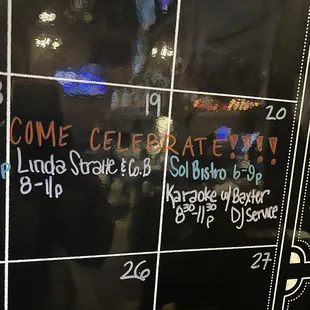 19
20
COME CELEBRATE!!!!
Linda Stratte & Co.B
8-11p
Sol Bistro 6-9p
Karaoke w/ Baxter
8³⁰-11³⁰ DJ Service
p
26
27